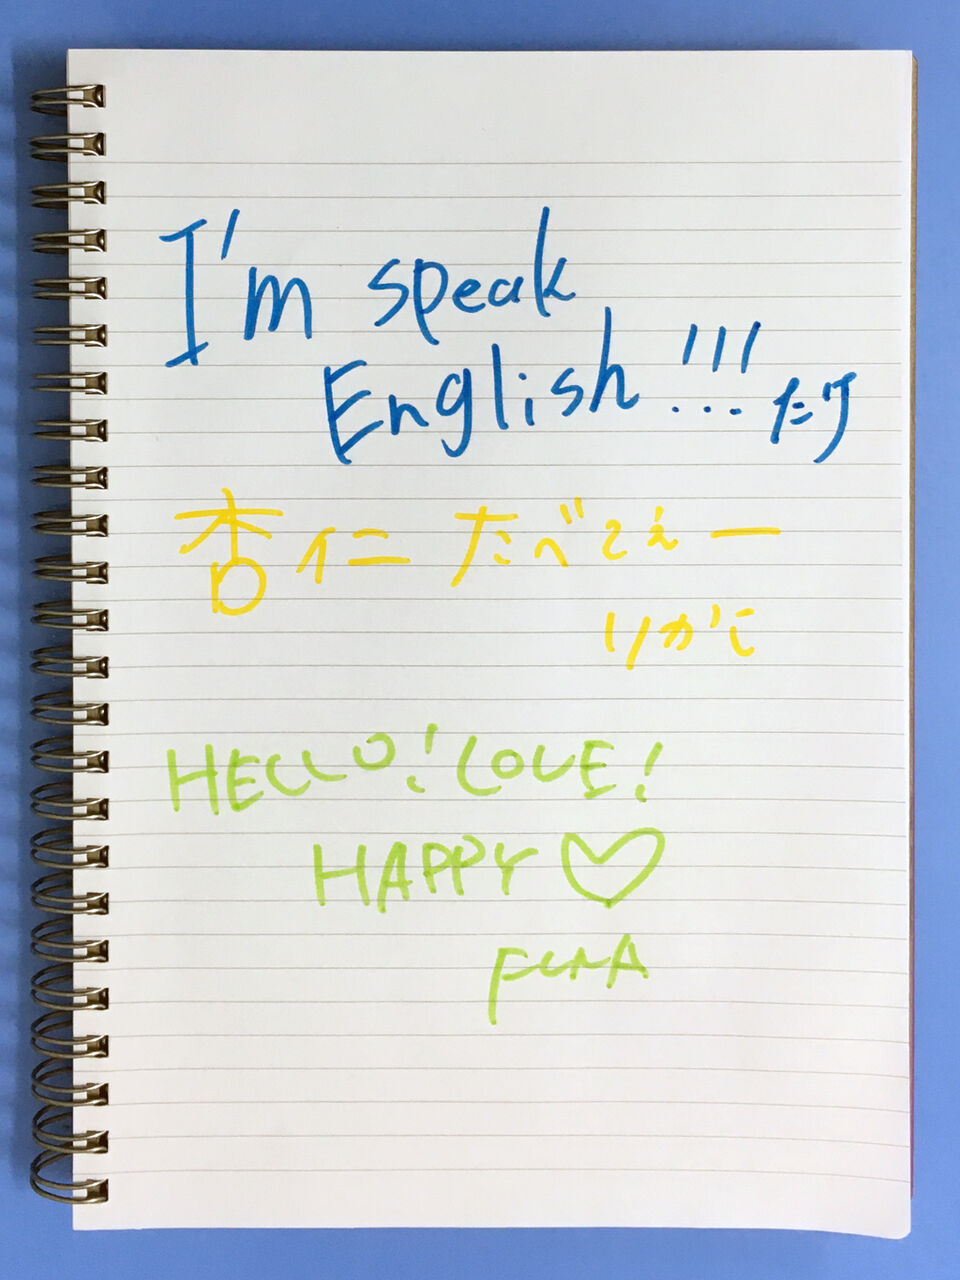 I'm speak
English!!! たけ
杏仁 たべてぇー
りかこ
HELLO! LOVE!
HAPPY♡